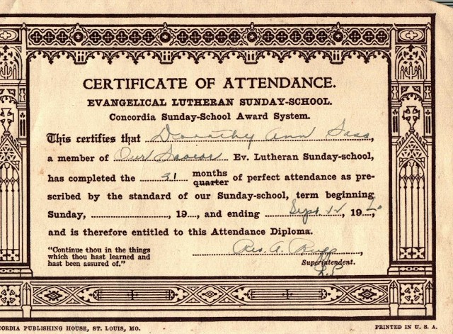 CERTIFICATE OF ATTENDANCE.
EVANGELICAL LUTHERAN SUNDAY-SCHOOL.
Concordia Sunday-School Award System.
This certifies that Dorothy Ann
a member of Our Ev. Lutheran Sunday-school,
has completed the months
quarter of perfect attendance as pre-
scribed by the standard of our Sunday-school, term beginning
Sunday, 19 , and ending Sept. 19
and is therefore entitled to this Attendance Diploma.
"Continue thou in the things
which thou hast learned and
hast been assured of."
Superintendent.
CORDIA PUBLISHING HOUSE, ST. LOUIS, MO.
PRINTED IN U. S. A.